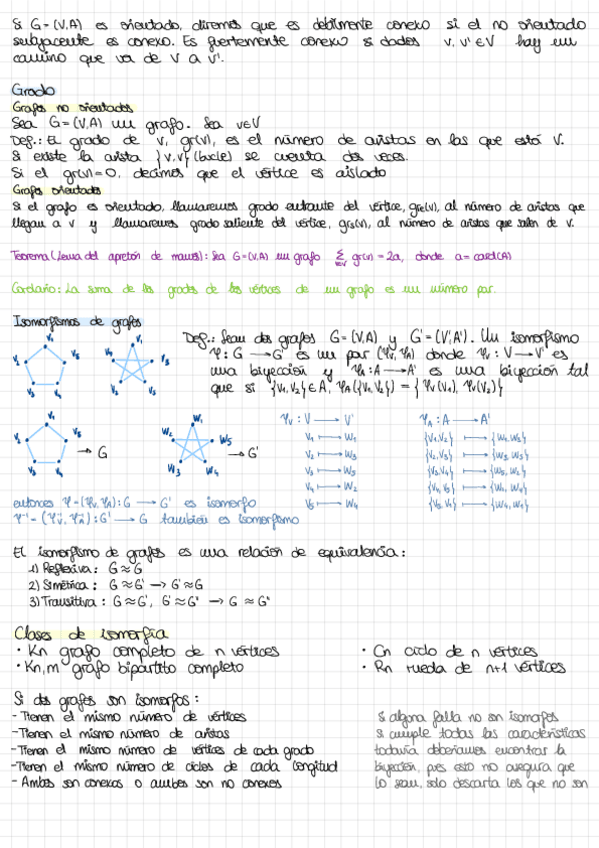 Si G=(V,A) es orientado, diremos que es debilmente conexo si el no orientado
subyacente es conexo. Es fuertemente conexo si dados v, v' ∈ V hay un
camino que va de v a v'.
Grado
Grafos no orientados
Sea G=(V,A) un grafo. Sea v∈V
Def.: El grado de v, gr(v), es el número de aristas en las que está v.
Si existe la arista {v,v} (bucle) se cuenta dos veces.
Si el gr(v)=0, decimos que el vértice es aislado
Grafos orientados
Si el grafo es orientado, llamaremos grado entrante del vértice, gre(v), al número de aristas que
llegan a v y llamaremos grado saliente del vértice, grs(v), al número de aristas que salen de v.
Teorema (Lema del apretón de manos): Sea G=(V,A) un grafo Σ gr(v) = 2a, donde a = card(A)
v∈V
Corolario: La suma de los grados de los vértices de un grafo es un número par.
Isomorfismos de grafos
Def.: Sean dos grafos G=(V,A) y G'=(V',A'). Un isomorfismo
Ψ: G → G' es un par (Ψv, ΨA) donde Ψv: V → V' es
una biyección y ΨA: A → A' es una biyección tal
que si {v1,v2} ∈ A, ΨA({v1,v2}) = {Ψv(v1), Ψv(v2)}
→ G
→ G'
Ψv: V → V'
v1 ↦ w1
v2 ↦ w3
v3 ↦ w5
v4 ↦ w2
v5 ↦ w4
ΨA: A → A'
entonces Ψ=(Ψv, ΨA): G → G' es isomorfo
Ψ⁻¹ = (Ψv⁻¹, ΨA⁻¹): G' → G también es isomorfismo
El isomorfismo de grafos es una relación de equivalencia:
1) Reflexiva: G≈G
2) Simétrica: G≈G' → G'≈G
3) Transitiva: G≈G', G'≈G" → G≈G"
Clases de isomorfía
· Kn grafo completo de n vértices
· Cn ciclo de n vértices
· Kn,m grafo bipartito completo
· Rn rueda de n+1 vértices
Si dos grafos son isomorfos:
- Tienen el mismo número de vértices
- Tienen el mismo número de aristas
- Tienen el mismo número de vértices de cada grado
- Tienen el mismo número de ciclos de cada longitud
- Ambos son conexos o ambos son no conexos
Si alguna falla no son isomorfos
Si cumple todas las características
todavía deberíamos encontrar la
biyección, pues esto no asegura que
lo sean, solo descarta los que no son